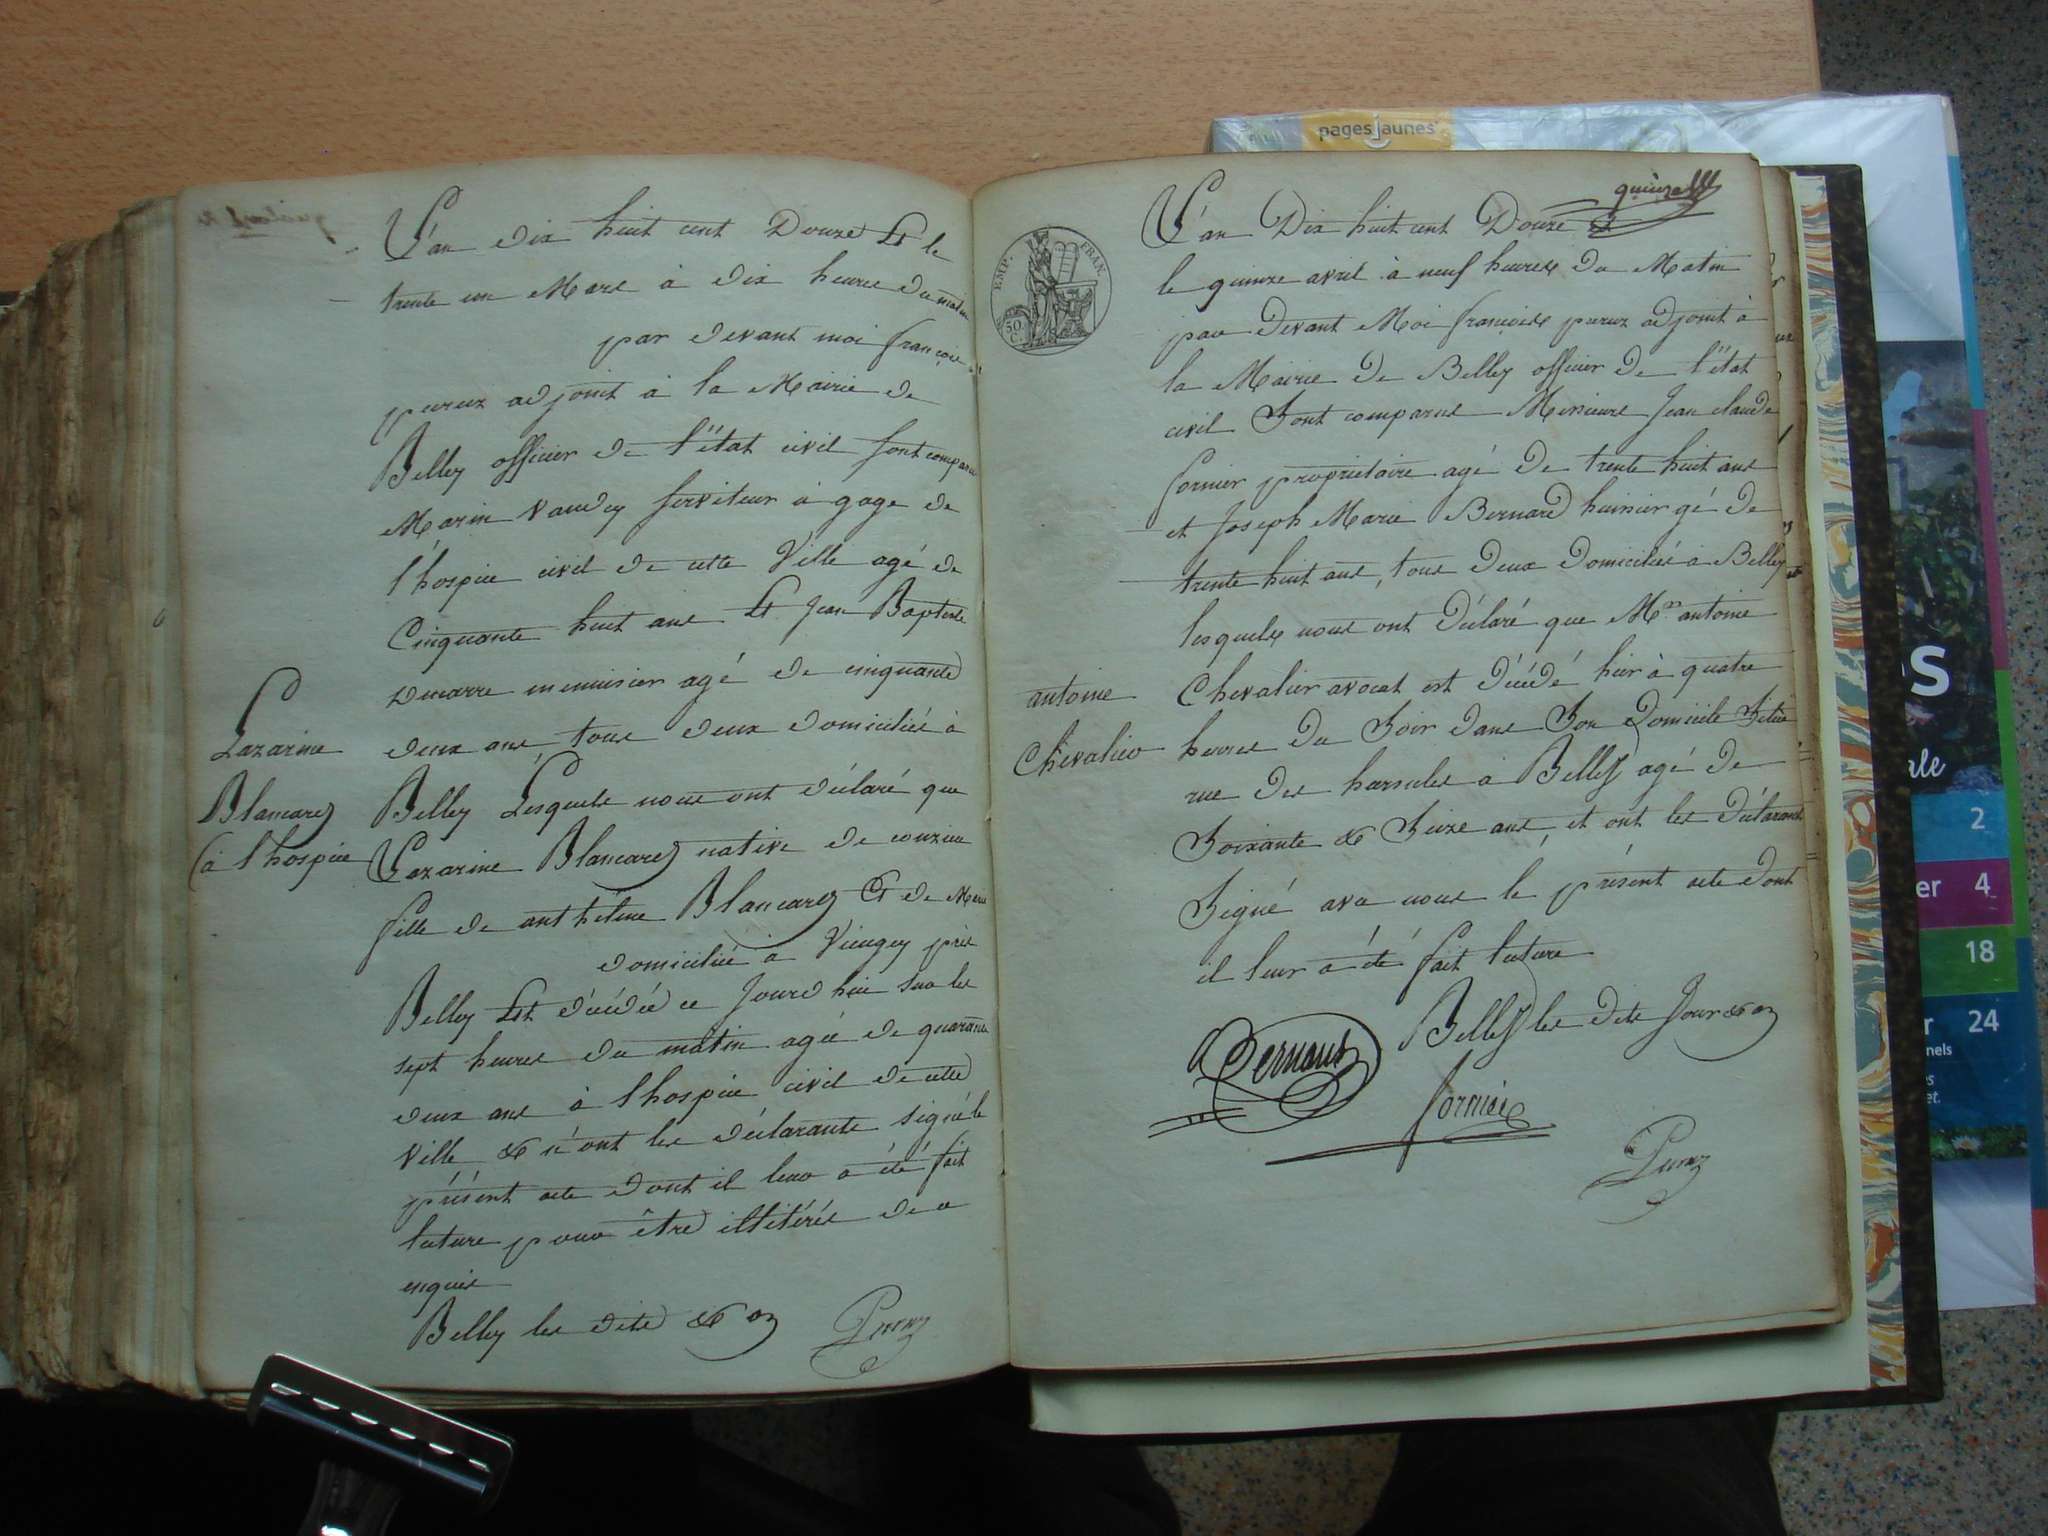 L'an dix huit cent Douze Et le
trente un Mars à dix heures du matin
par devant moi françois
peruz adjoint à la Mairie de
Belley officier de l'état civil sont comparu
Marin vaudey serviteur à gage de
l'hospice civil de cette Ville agé de
Cinquante huit ans Et Jean Baptiste
menuisier agé de cinquante
deux ans tous deux domiciliés à
Belley Lesquels nous ont déclaré que
Lazarine Blancard native de
fille de anthelme Blancard Et de Marie
domiciliée à près
Belley Est décédée ce Jourd hui sur les
sept heures du matin agée de quarante
deux ans à l'hospice civil de cette
ville & n'ont les déclarants signé le
présent acte dont il leur a été fait
lecture pour être illitérés de ce
enquis
Belley les dits & an
Peruz
Lazarine
Blancard
(à l'hospice
quinze
EMP. FRAN.
50 C.
L'an Dix huit cent Douze &
le quinze avril à neuf heures du Matin
par Devant Moi françois peruz adjoint à
la Mairie de Belley officier de l'état
civil Sont comparus Messieurs Jean claude
fornier proprietaire agé de trente huit ans
et Joseph Marie Bernard huissier gé de
trente huit ans, tous Deux Domiciliés à Belley
lesquels nous ont Déclaré que Mr antoine
Chevalier avocat est Décédé hier à quatre
heures du Soir dans Son Domicile Situé
rue des à Belley agé de
Soixante & Seize ans, et ont les Déclarants
Signé avec nous le présent acte dont
il leur a été fait lecture
Belley les dits Jour & an
antoine
Chevalier
Bernard
fornier
Peruz
pagesjaunes
2
er 4
18
r 24
nels
es
et.